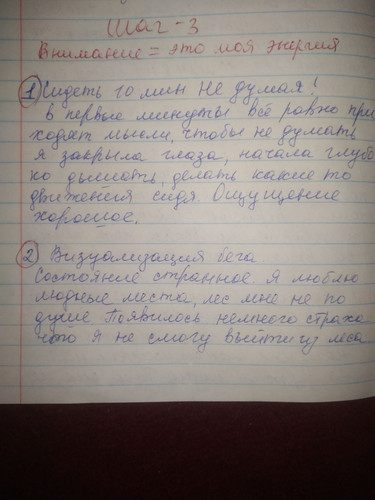 Шаг-3
Внимание = это моя энергия
1 Сидеть 10 мин не думая!
в первые минуты всё равно при
ходят мысли, чтобы не думать
я закрыла глаза, начала глубо
ко дышать, делать какие то
движения сидя. Ощущение
хорошое.
2 Визуализация бега
Состояние странное. Я люблю
людные места, лес мне не по
душе. Появилось немного страха
что я не смогу выйти из леса.